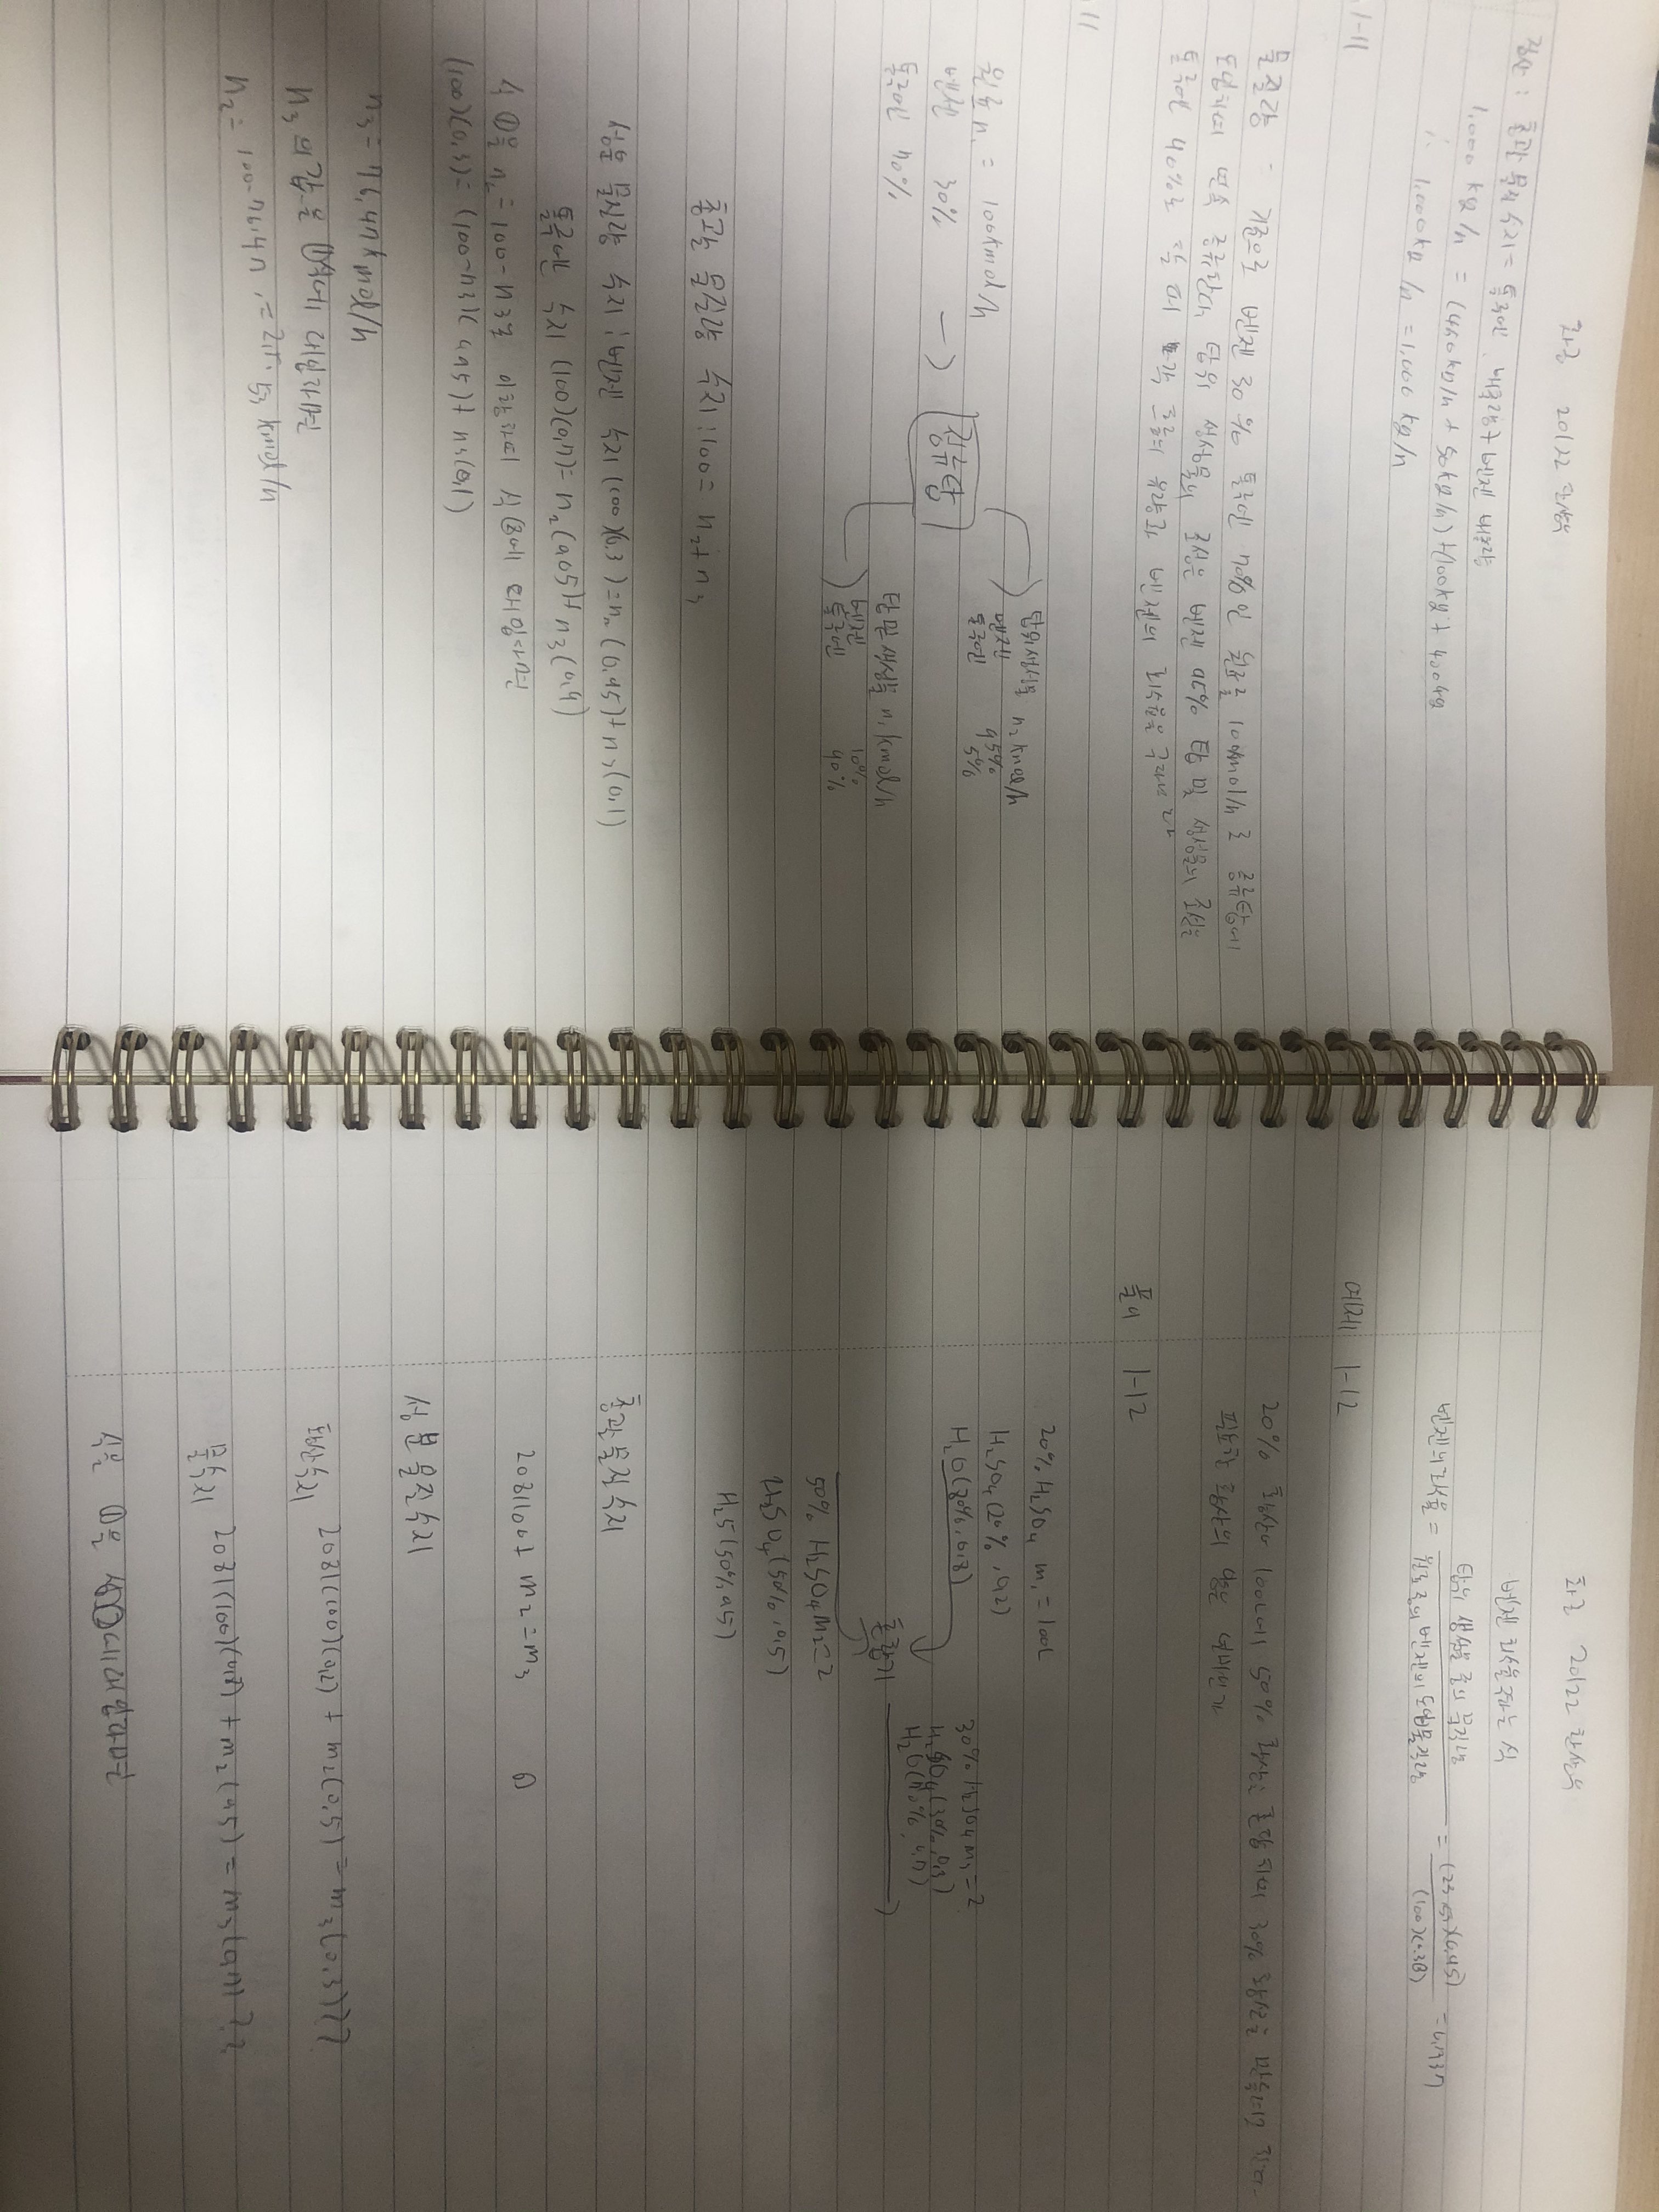 화공 20122 한상욱
검산 : 총괄 물질수지 = 톨루엔 배출량 + 벤젠 배출량
1,000 kg/h = (450kg/h + 50kg/h) + (100kg + 400kg
∴ 1,000kg/h = 1,000 kg/h
1-11
물질량 기준으로 벤젠 30% 톨루엔 70%인 원료를 100kmol/h로 증류탑에
도입하여 연속 증류한다, 탑위 생성물의 조성은 벤젠 95% 탑 밑 생성물의 조성은
톨루엔 90%로 할 때 각 흐름의 유량과 벤젠의 회수율을 구하여라
11
원료 n₁ = 100kmol/h
벤젠 30%
톨루엔 70%
증류탑
탑위생성물 n₂ kmol/h
벤젠 95%
톨루엔 5%
탑 밑 생성물 n, kmol/h
벤젠 10%
톨루엔 90%
총괄 물질량 수지 : 100 = n₂ + n₃
성분 물질량 수지 : 벤젠 수지 (100)(0.3) = n₂(0.95) + n₃(0.1)
톨루엔 수지 (100)(0.7) = n₂(0.05) + n₃(0.9)
식 ①을 n₂ = 100 - n₃로 이항하여 식 ②에 대입하면
(100)(0.3) = (100-n₃)(0.95) + n₃(0.1)
n₃ = 76.47 kmol/h
n₃의 값을 ①식에 대입하면
n₂ = 100-76.47 = 23.53 kmol/h
화공 20122 한상욱
벤젠 회수율 구하는 식
벤젠의 회수율 = 탑위 생성물 중의 물질량 / 원료 중의 벤젠의 도입물질량 = (23.53)(0.95) / (100)(0.3) =
예제 1-12
20% 황산 100L에 50% 황산을 혼합하여 30% 황산을 만들려고 한다.
필요한 황산의 양은 몇 L인가
풀이 1-12
20% H₂SO₄ m₁ = 100L
H₂SO₄ (20%, 0.2)
H₂O (80%, 0.8)
혼합기
30% H₂SO₄ m₃ = ?
H₂SO₄ (30%, 0.3)
H₂O (70%, 0.7)
50% H₂SO₄ m₂ = ?
H₂SO₄ (50%, 0.5)
H₂O (50%, 0.5)
총괄물질수지
100 + m₂ = m₃ ①
성분 물질수지
황산수지 (100)(0.2) + m₂(0.5) = m₃(0.3)
물수지 (100)(0.8) + m₂(0.5) = m₃(0.7)
식을 ①을 에 대입하면